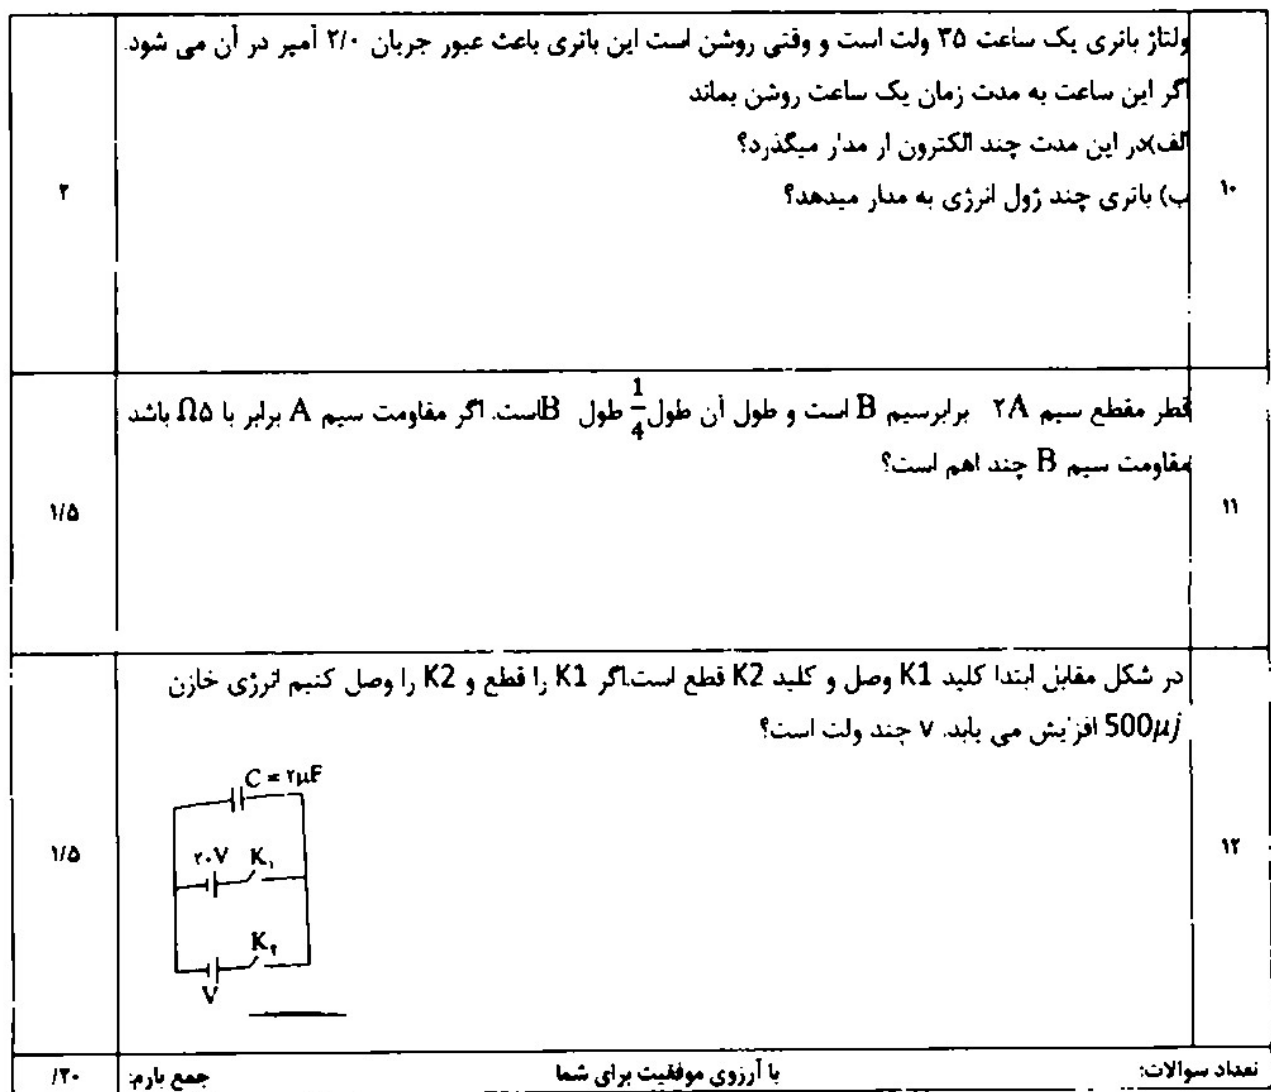 ۱۰
ولتاژ باتری یک ساعت ۳۵ ولت است و وقتی روشن است این باتری باعث عبور جریان ۲/۰ آمپر در آن می شود.
اگر این ساعت به مدت زمان یک ساعت روشن بماند
الف)در این مدت چند الکترون از مدار میگذرد؟
ب) باتری چند ژول انرژی به مدار میدهد؟
۲
۱۱
قطر مقطع سیم ۲A برابرسیم B است و طول آن طول 1/4 طول Bاست. اگر مقاومت سیم A برابر با Ω۵ باشد
مقاومت سیم B چند اهم است؟
۱/۵
۱۲
در شکل مقابل ابتدا کلید K1 وصل و کلید K2 قطع است.اگر K1 را قطع و K2 را وصل کنیم انرژی خازن
500μj افزایش می یابد. v چند ولت است؟
C = ۲μF
۲۰V K۱
K۲
V
۱/۵
تعداد سوالات: با آرزوی موفقیت برای شما جمع بارم: /۲۰